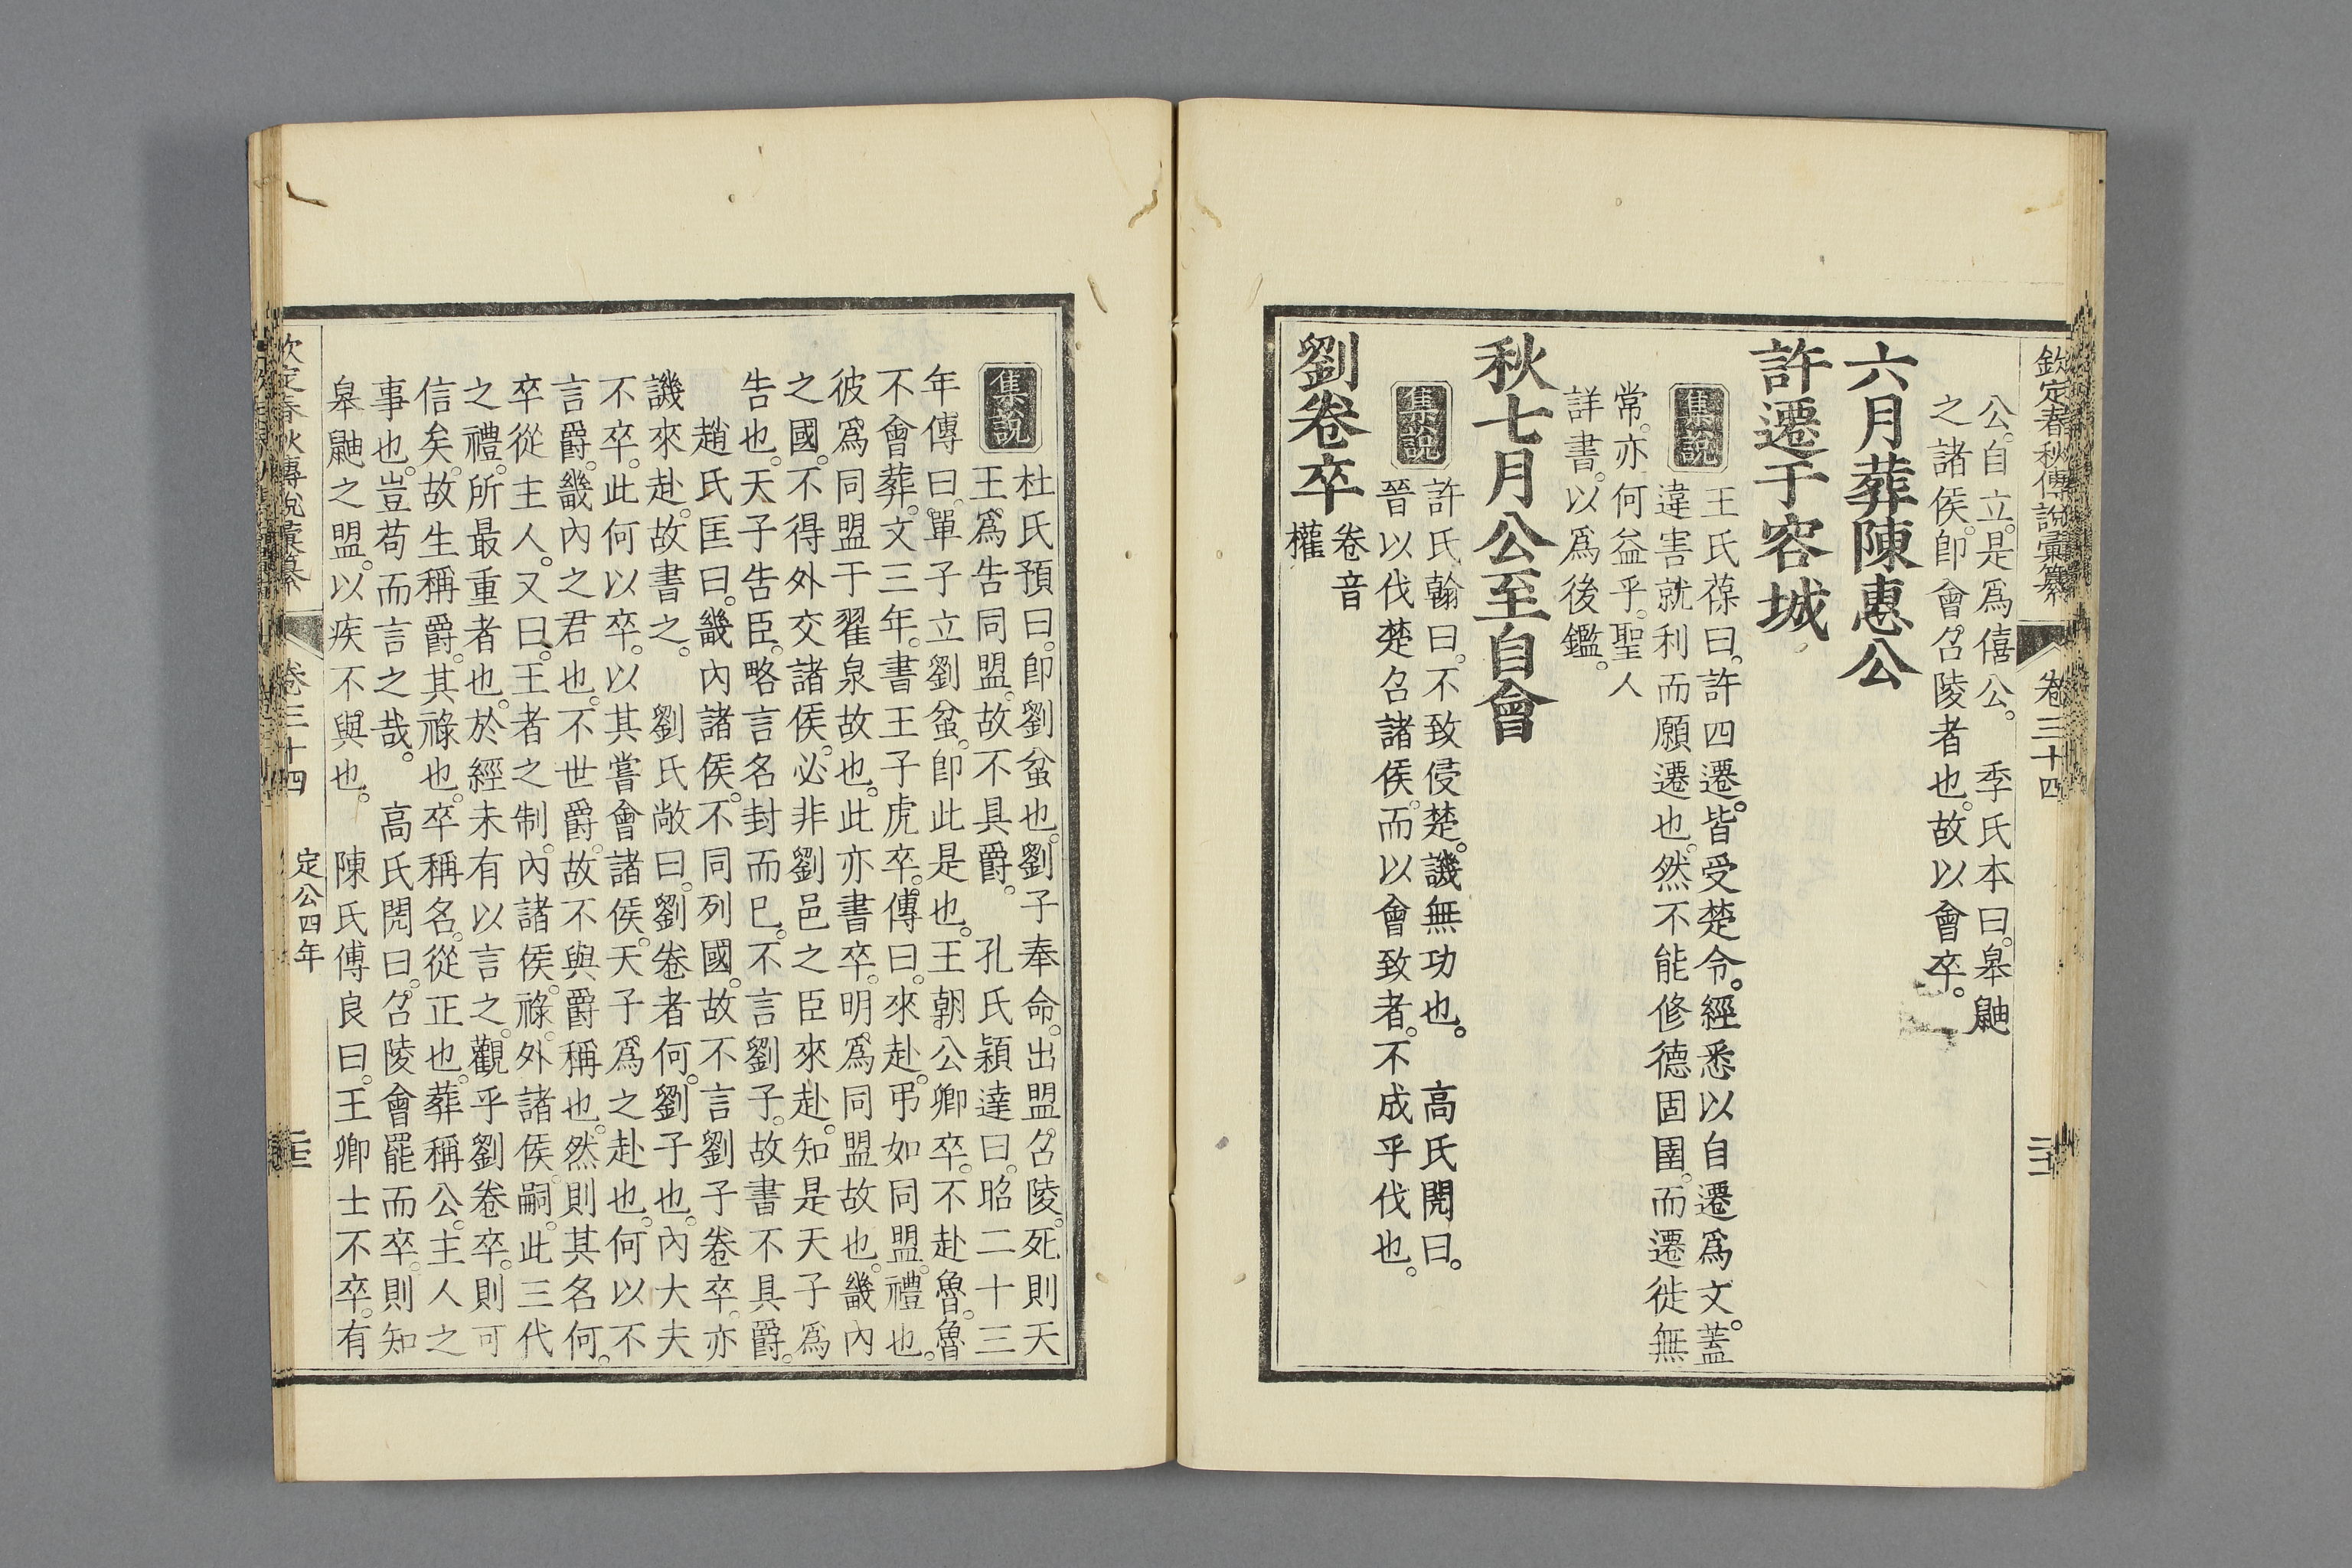 欽定春秋傳說彙纂 卷三十四
公。自立。是爲僖公。 季氏本曰。皋鼬
之諸侯。卽會召陵者也。故以會卒。
六月葬陳惠公
許遷于容城
集說 王氏葆曰。許四遷。皆受楚令。經悉以自遷爲文。蓋
違害就利而願遷也。然不能修德固圉。而遷徙無
常。亦何益乎。聖人
詳書。以爲後鑑。
秋七月公至自會
集說 許氏翰曰。不致侵楚。譏無功也。 高氏閌曰。
晉以伐楚召諸侯。而以會致者。不成乎伐也。
劉卷卒 卷音
權
集說 杜氏預曰。卽劉蚠也。劉子奉命。出盟召陵。死則天
王爲告同盟。故不具爵。 孔氏穎達曰。昭二十三
年傳曰。單子立劉蚠。卽此是也。王朝公卿卒。不赴魯。魯
不會葬。文三年。書王子虎卒。傳曰。來赴。弔如同盟。禮也。
彼爲同盟于翟泉故也。此亦書卒。明爲同盟故也。畿內
之國。不得外交諸侯。必非劉邑之臣來赴。知是天子爲
告也。天子告臣。略言名封而已。不言劉子。故書不具爵。
趙氏匡曰。畿內諸侯。不同列國。故不言劉子卷卒。亦
譏來赴。故書之。 劉氏敞曰。劉卷者何。劉子也。內大夫
不卒。此何以卒。以其嘗會諸侯。天子爲之赴也。何以不
言爵。畿內之君也。不世爵。故不與爵稱也。然則其名何。
卒從主人。又曰。王者之制。內諸侯。祿。外諸侯。嗣。此三代
之禮。所最重者也。於經未有以言之。觀乎劉卷卒。則可
信矣。故生稱爵。其祿也。卒稱名。從正也。葬稱公。主人之
事也。豈苟而言之哉。 高氏閌曰。召陵會罷而卒。則知
皋鼬之盟。以疾不與也。 陳氏傅良曰。王卿士不卒。有
欽定春秋傳說彙纂 卷三十四 定公四年